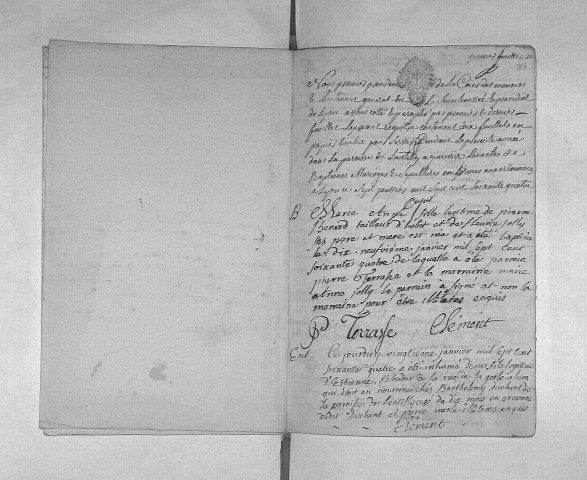 premier feuillet
Nous premier president de la Cour des monnoies
& Lieutenant general en la Senechaussée & presidial
de Lyon avons coté & paraphé par premier & dernier
feuillet le present registre contenant six feuillets en
papier timbré pour servir pendant la presente année
dans la paroisse de a y inserer les actes de
Baptemes Mariages & Sepultures
a Lyon ce Sept janvier mil Sept cent Soixante quatre
B Marie Anne fille legitime de pierre
Benard tailleur d'habit et de fleurie jolly
ses pere et mere est née et a été baptisée
le dix-neufvième janvier mil sept cent
soixante quatre de laquelle a été parrein
pierre Terrasse et la marraine marie
Anne jolly le parrein a signé et non la
marraine pour être illiteree enquis
P Terrasse Clément
Ent le jourduy vingtième janvier mil sept cent
soixante quatre a été inhumé denis fils legitime
d'Estienne Blondar de la rue de la
qui étoit en nourrice chés Barthelemy
la paroisse de agé de dix mois en presence
dudit et pierre merle illiteres enquis
Clément